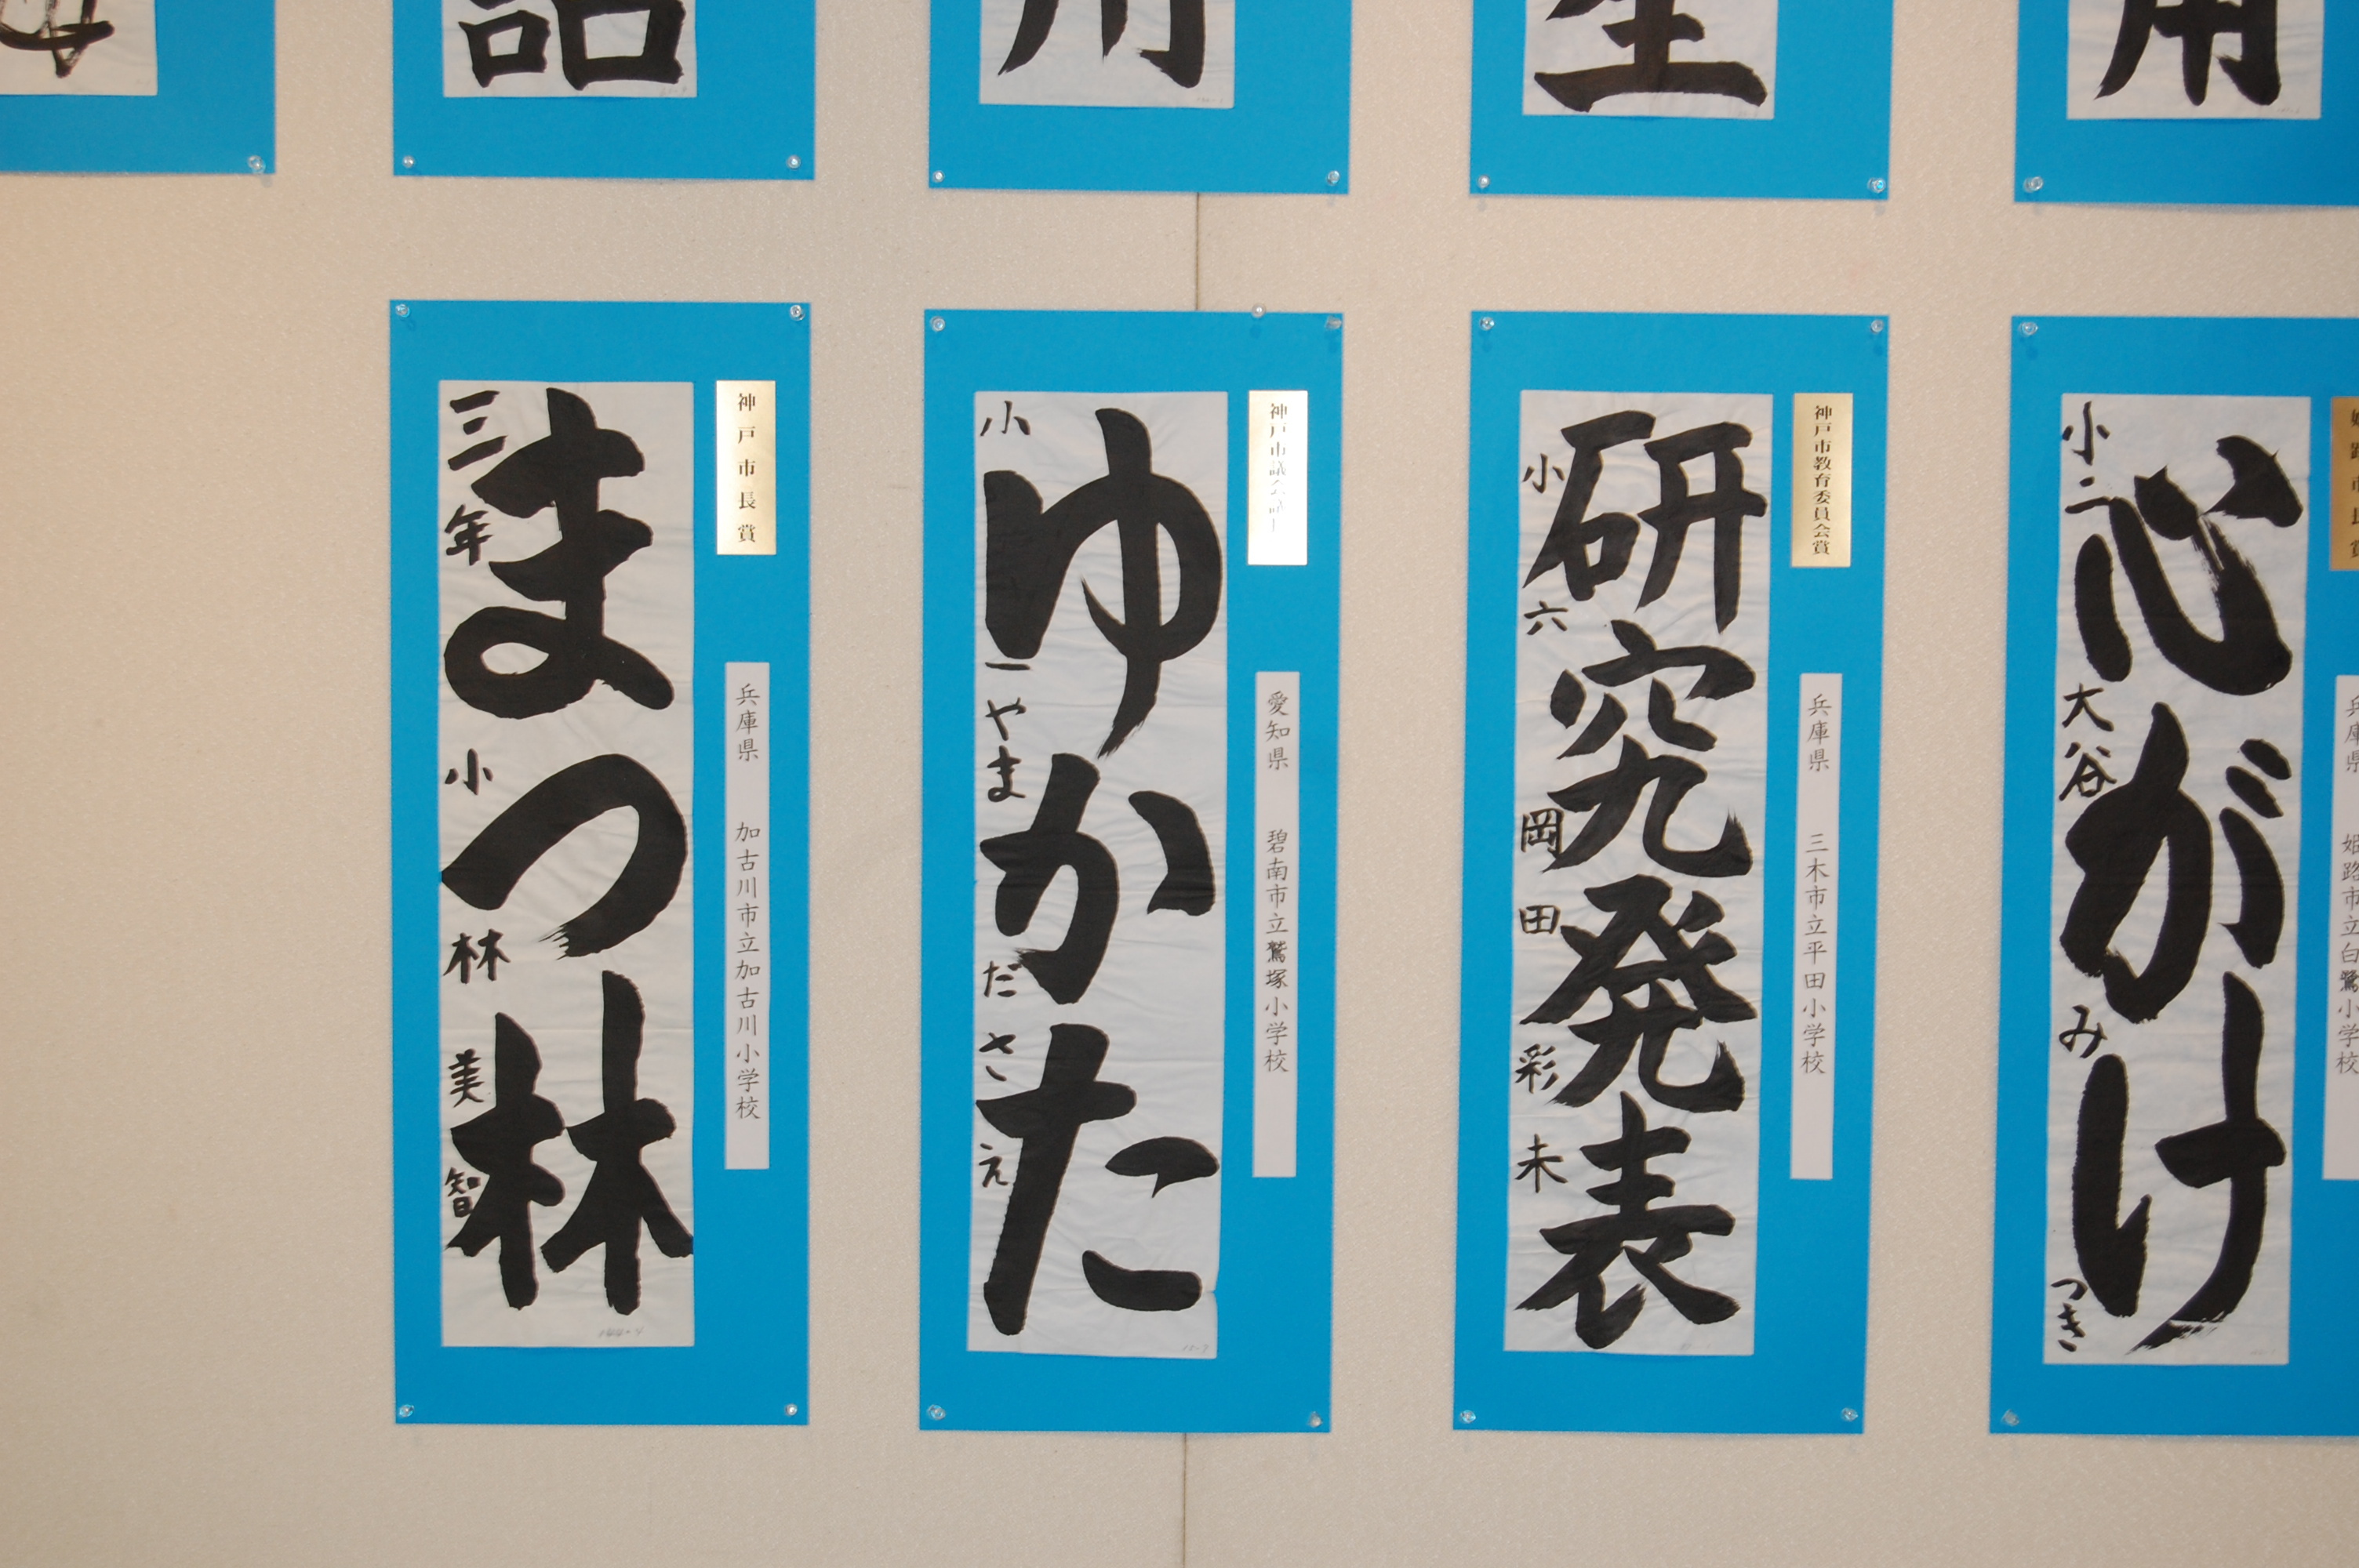 まつ林
三年 小林美智
神戸市長賞
兵庫県 加古川市立加古川小学校
ゆかた
小一 やまだ さえ
神戸市議会議
愛知県 碧南市立鷲塚小学校
研究発表
小六 岡田彩未
神戸市教育委員会賞
兵庫県 三木市立平田小学校
心がけ
小二 大谷みつき
姫路市長賞
兵庫県 姫路市立白鷺小学校